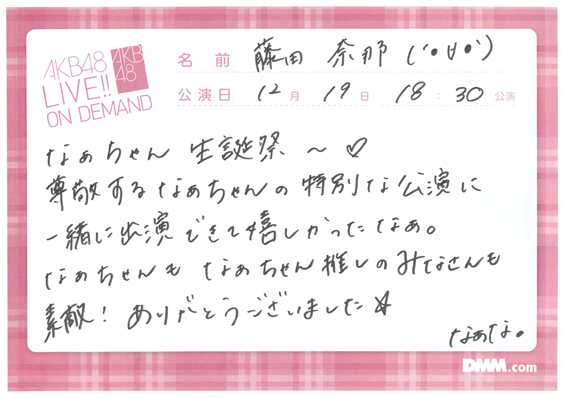 AKB48
LIVE!!
ON DEMAND
AKB
48
名前 藤田 奈那 (´•∀•`)
公演日 12月 19日 18:30公演
なぁちゃん 生誕祭 〜 ♡
尊敬するなぁちゃんの特別な公演に
一緒に出演できて嬉しかったなぁ。
なぁちゃんも なぁちゃん推しのみなさんも
素敵! ありがとうございました☆
なぁな。
DMM.com